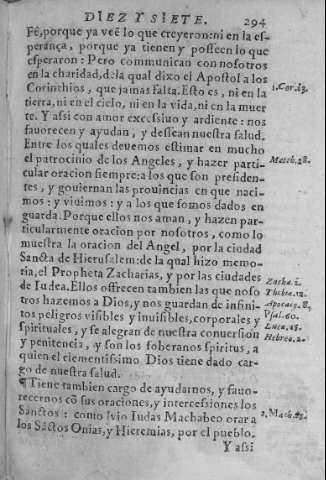 DIEZ Y SIETE. 294
Fê, porque ya veẽ lo que creyeron: ni en la es-
perança, porque ya tienen y posseen lo que
esperaron: Pero communican con nosotros
en la charidad, de la qual dixo el Apostol a los
Corinthios, que jamas falta. Esto es, ni en la
1. Cor. 13.
tierra, ni en el cielo, ni en la vida, ni en la muer
te. Y assi con amor excessiuo y ardiente: nos
fauorecen y ayudan, y dessean nuestra salud.
Entre los quales deuemos estimar en mucho
el patrocinio de los Angeles, y hazer parti-
Matth. 18.
cular oracion siempre: a los que son presiden-
tes, y gouiernan las prouincias en que naci-
mos: y viuimos: y a los que somos dados en
guarda. Porque ellos nos aman, y hazen par-
ticularmente oracion por nosotros, como lo
muestra la oracion del Angel, por la ciudad
Sancta de Hierusalem: de la qual hizo memo-
ria, el Propheta Zacharias, y por las ciudades
Zacha. 1.
de Iudea. Ellos offrecen tambien las que noso
Thobiæ. 12.
tros hazemos a Dios, y nos guardan de infini-
Apocaly. 8.
tos peligros visibles y inuisibles, corporales y
Psal. 90.
spirituales, y se alegran de nuestra conuersion
Luca. 15.
y penitencia, y son los soberanos spiritus, a
Hebreo. 2.
quien el clementissimo Dios tiene dado car-
go de nuestra salud.
¶ Tiene tambien cargo de ayudarnos, y fauo-
recernos cõ sus oraciones, y intercessiones los
Sanctos: como lvio Iudas Machabeo orar a
2. Mach. 15.
los Sãctos Onias, y Hieremias, por el pueblo.
Y assi